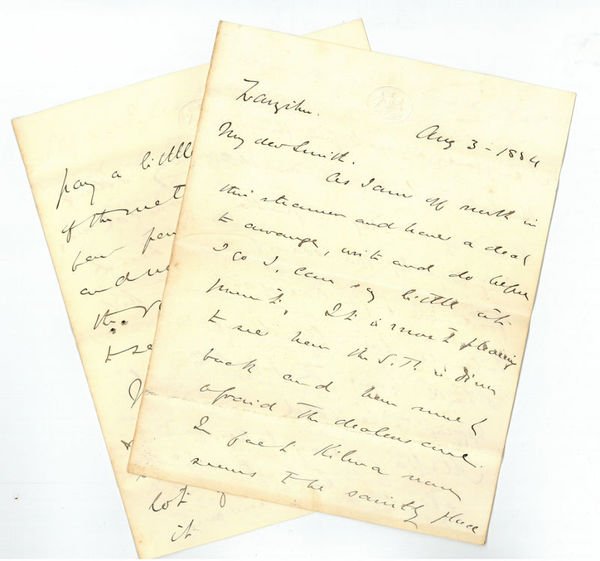 Zanzibar.
Aug 3 - 1884
My dear Smith.
As I am off north in
this steamer and have a deal
to arrange, write and do before
I go I can say little at
present. It is most pleasing
to see how the S.T. is
back and how much
afraid the dealers are.
In fact Kilwa now
seems to be the place
pay a little
of the
and
the
to see
lot
it